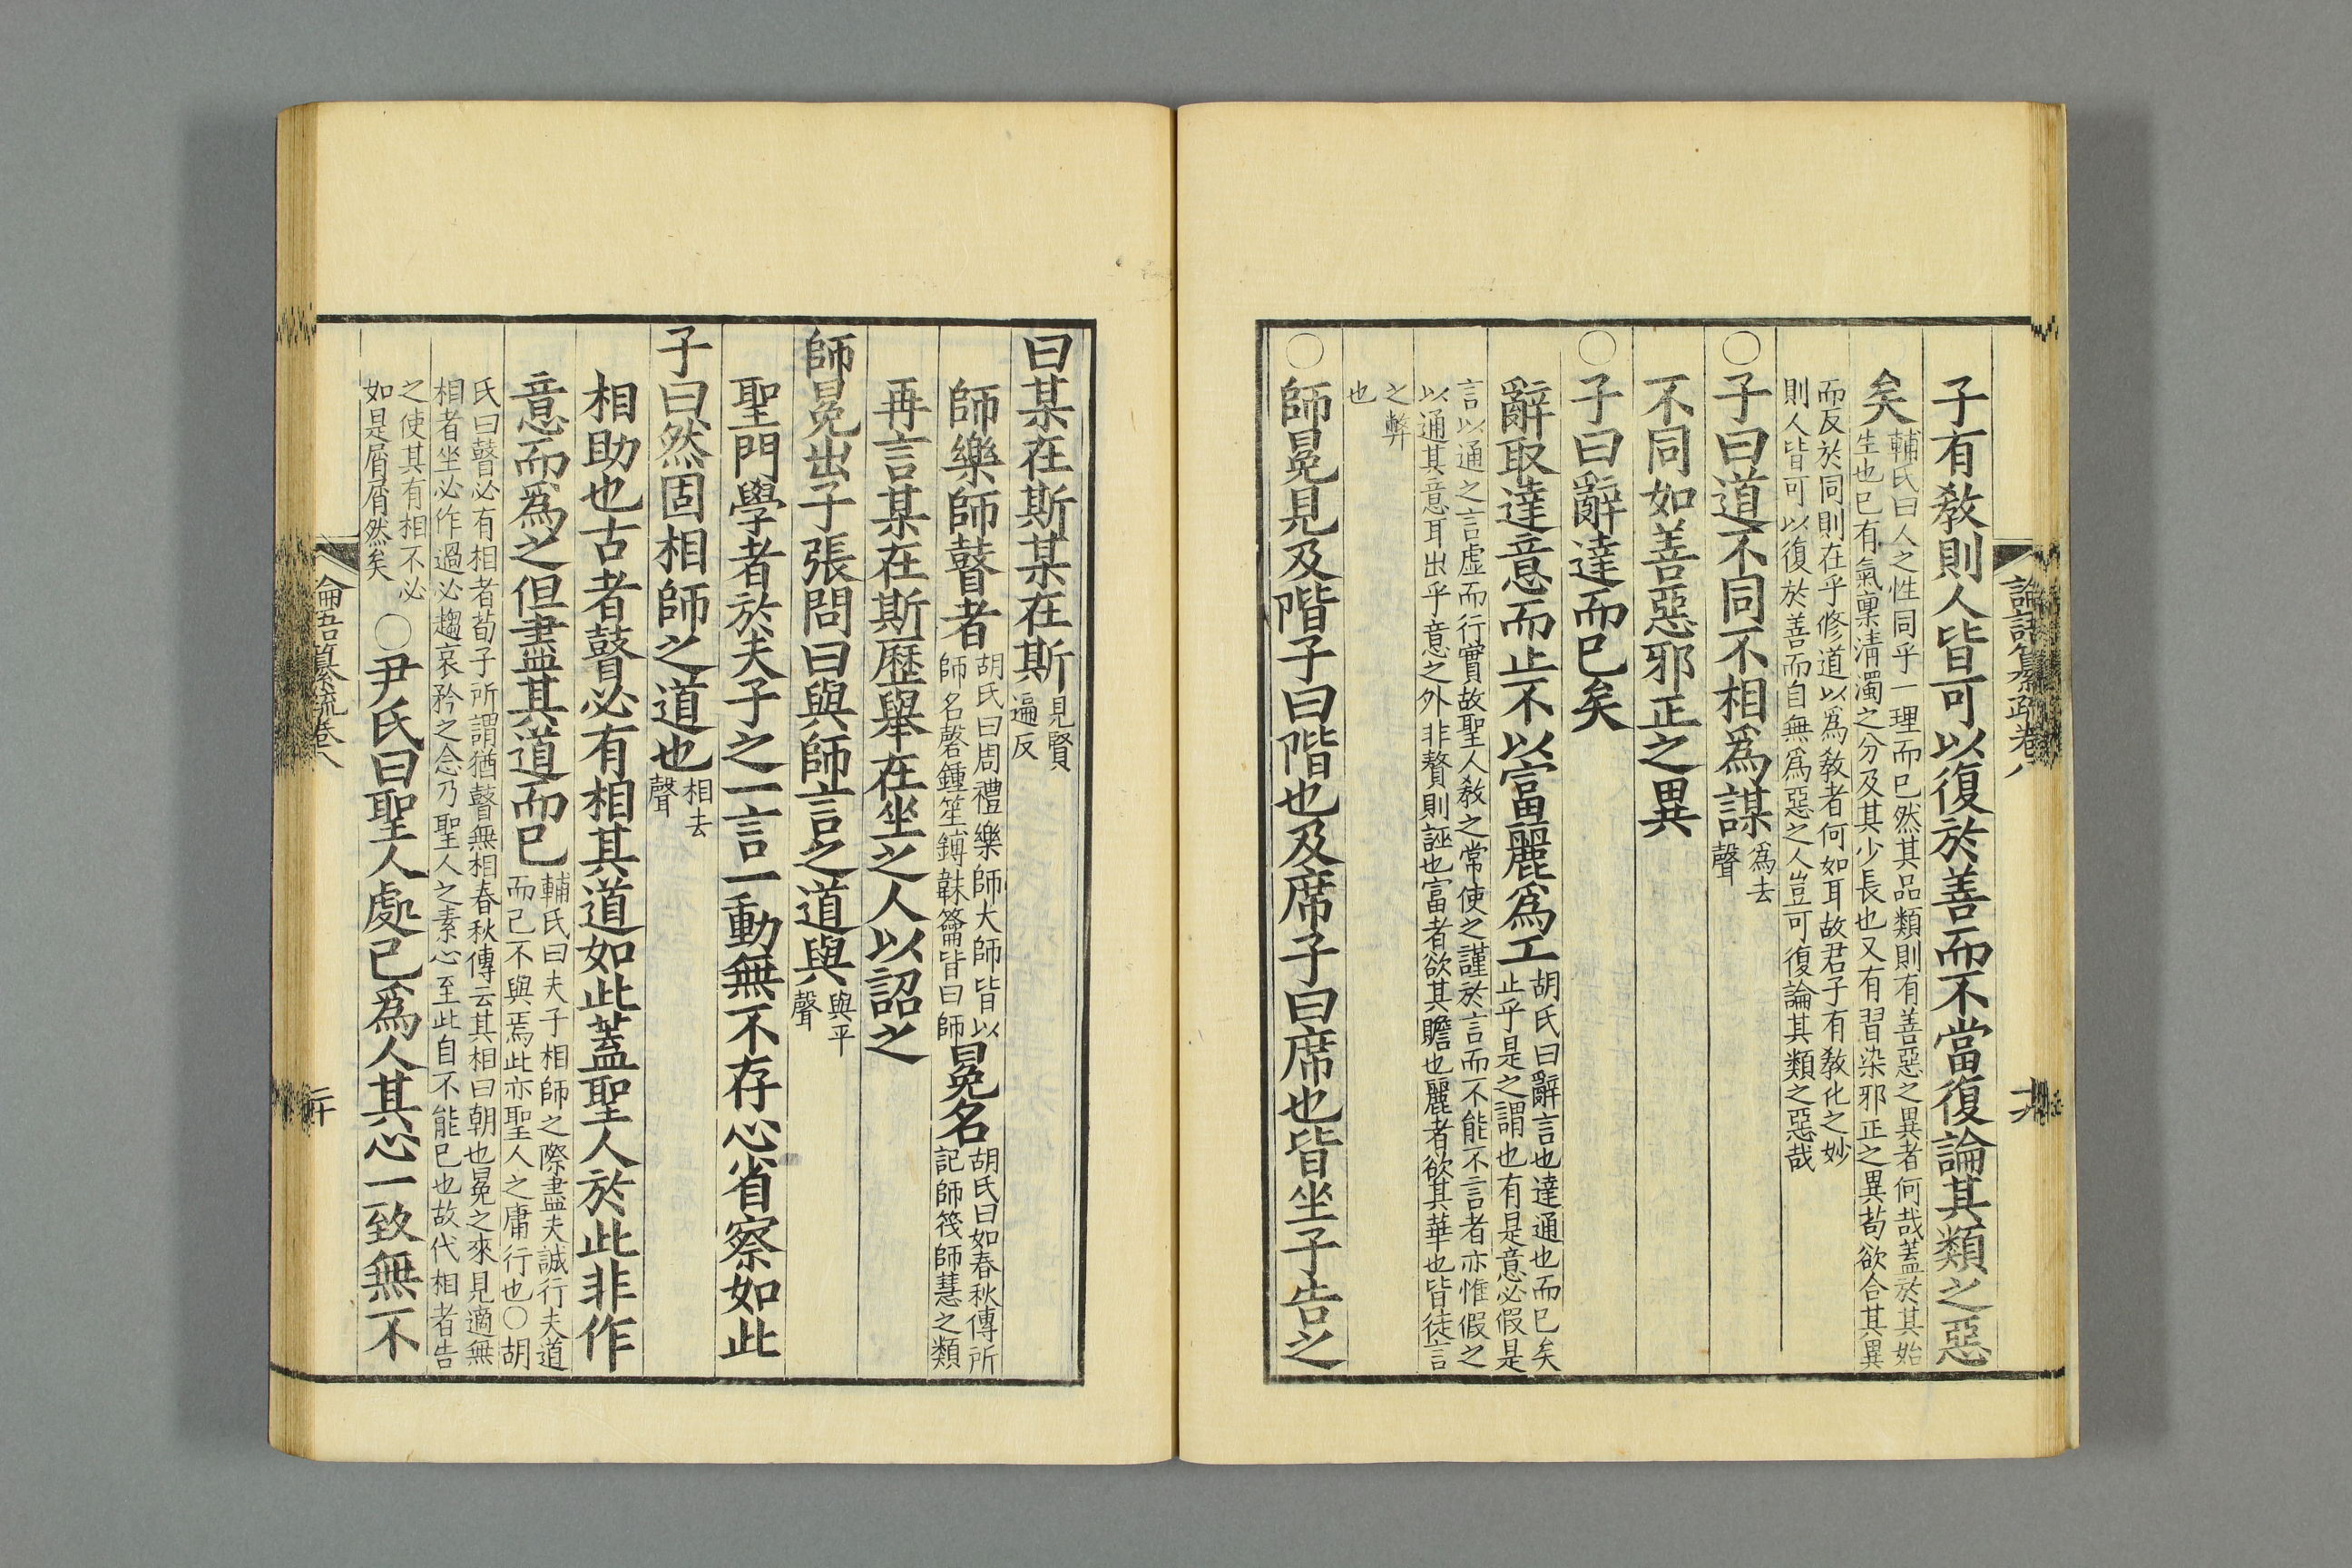 論語纂疏卷八
十九
子有敎則人皆可以復於善而不當復論其類之惡
矣
輔氏曰人之性同乎一理而已然其品類則有善惡之異者何哉蓋於其始
生也已有氣稟清濁之分及其少長也又有習染邪正之異苟欲合其異
而反於同則在乎修道以爲敎者何如耳故君子有敎化之妙
則人皆可以復於善而自無爲惡之人豈可復論其類之惡哉
○子曰道不同不相爲謀
爲去
聲
不同如善惡邪正之異
○子曰辭達而已矣
辭取達意而止不以富麗爲工
胡氏曰辭言也達通也而已矣
止乎是之謂也有是意必假是
言以通之言虛而行實故聖人敎之常使之謹於言而不能不言者亦惟假之
以通其意耳出乎意之外非贅則誣也富者欲其贍也麗者欲其華也皆徒言
之弊
也
○師冕見及階子曰階也及席子曰席也皆坐子告之
曰某在斯某在斯
見賢
遍反
師樂師瞽者
胡氏曰周禮樂師大師皆以
師名磬鍾笙鎛韎籥皆曰師
冕名
胡氏曰如春秋傳所
記師筏師慧之類
再言某在斯歷舉在坐之人以詔之
師冕出子張問曰與師言之道與
與平
聲
聖門學者於夫子之一言一動無不存心省察如此
子曰然固相師之道也
相去
聲
相助也古者瞽必有相其道如此蓋聖人於此非作
意而爲之但盡其道而已
輔氏曰夫子相師之際盡夫誠行夫道
而已不與焉此亦聖人之庸行也○胡
氏曰瞽必有相者荀子所謂猶瞽無相春秋傳云其相曰朝也冕之來見適無
相者坐必作過必趨哀矜之念乃聖人之素心至此自不能已也故代相者告
之使其有相不必
如是屑屑然矣
○尹氏曰聖人處己爲人其心一致無不
論語纂疏卷八
二十